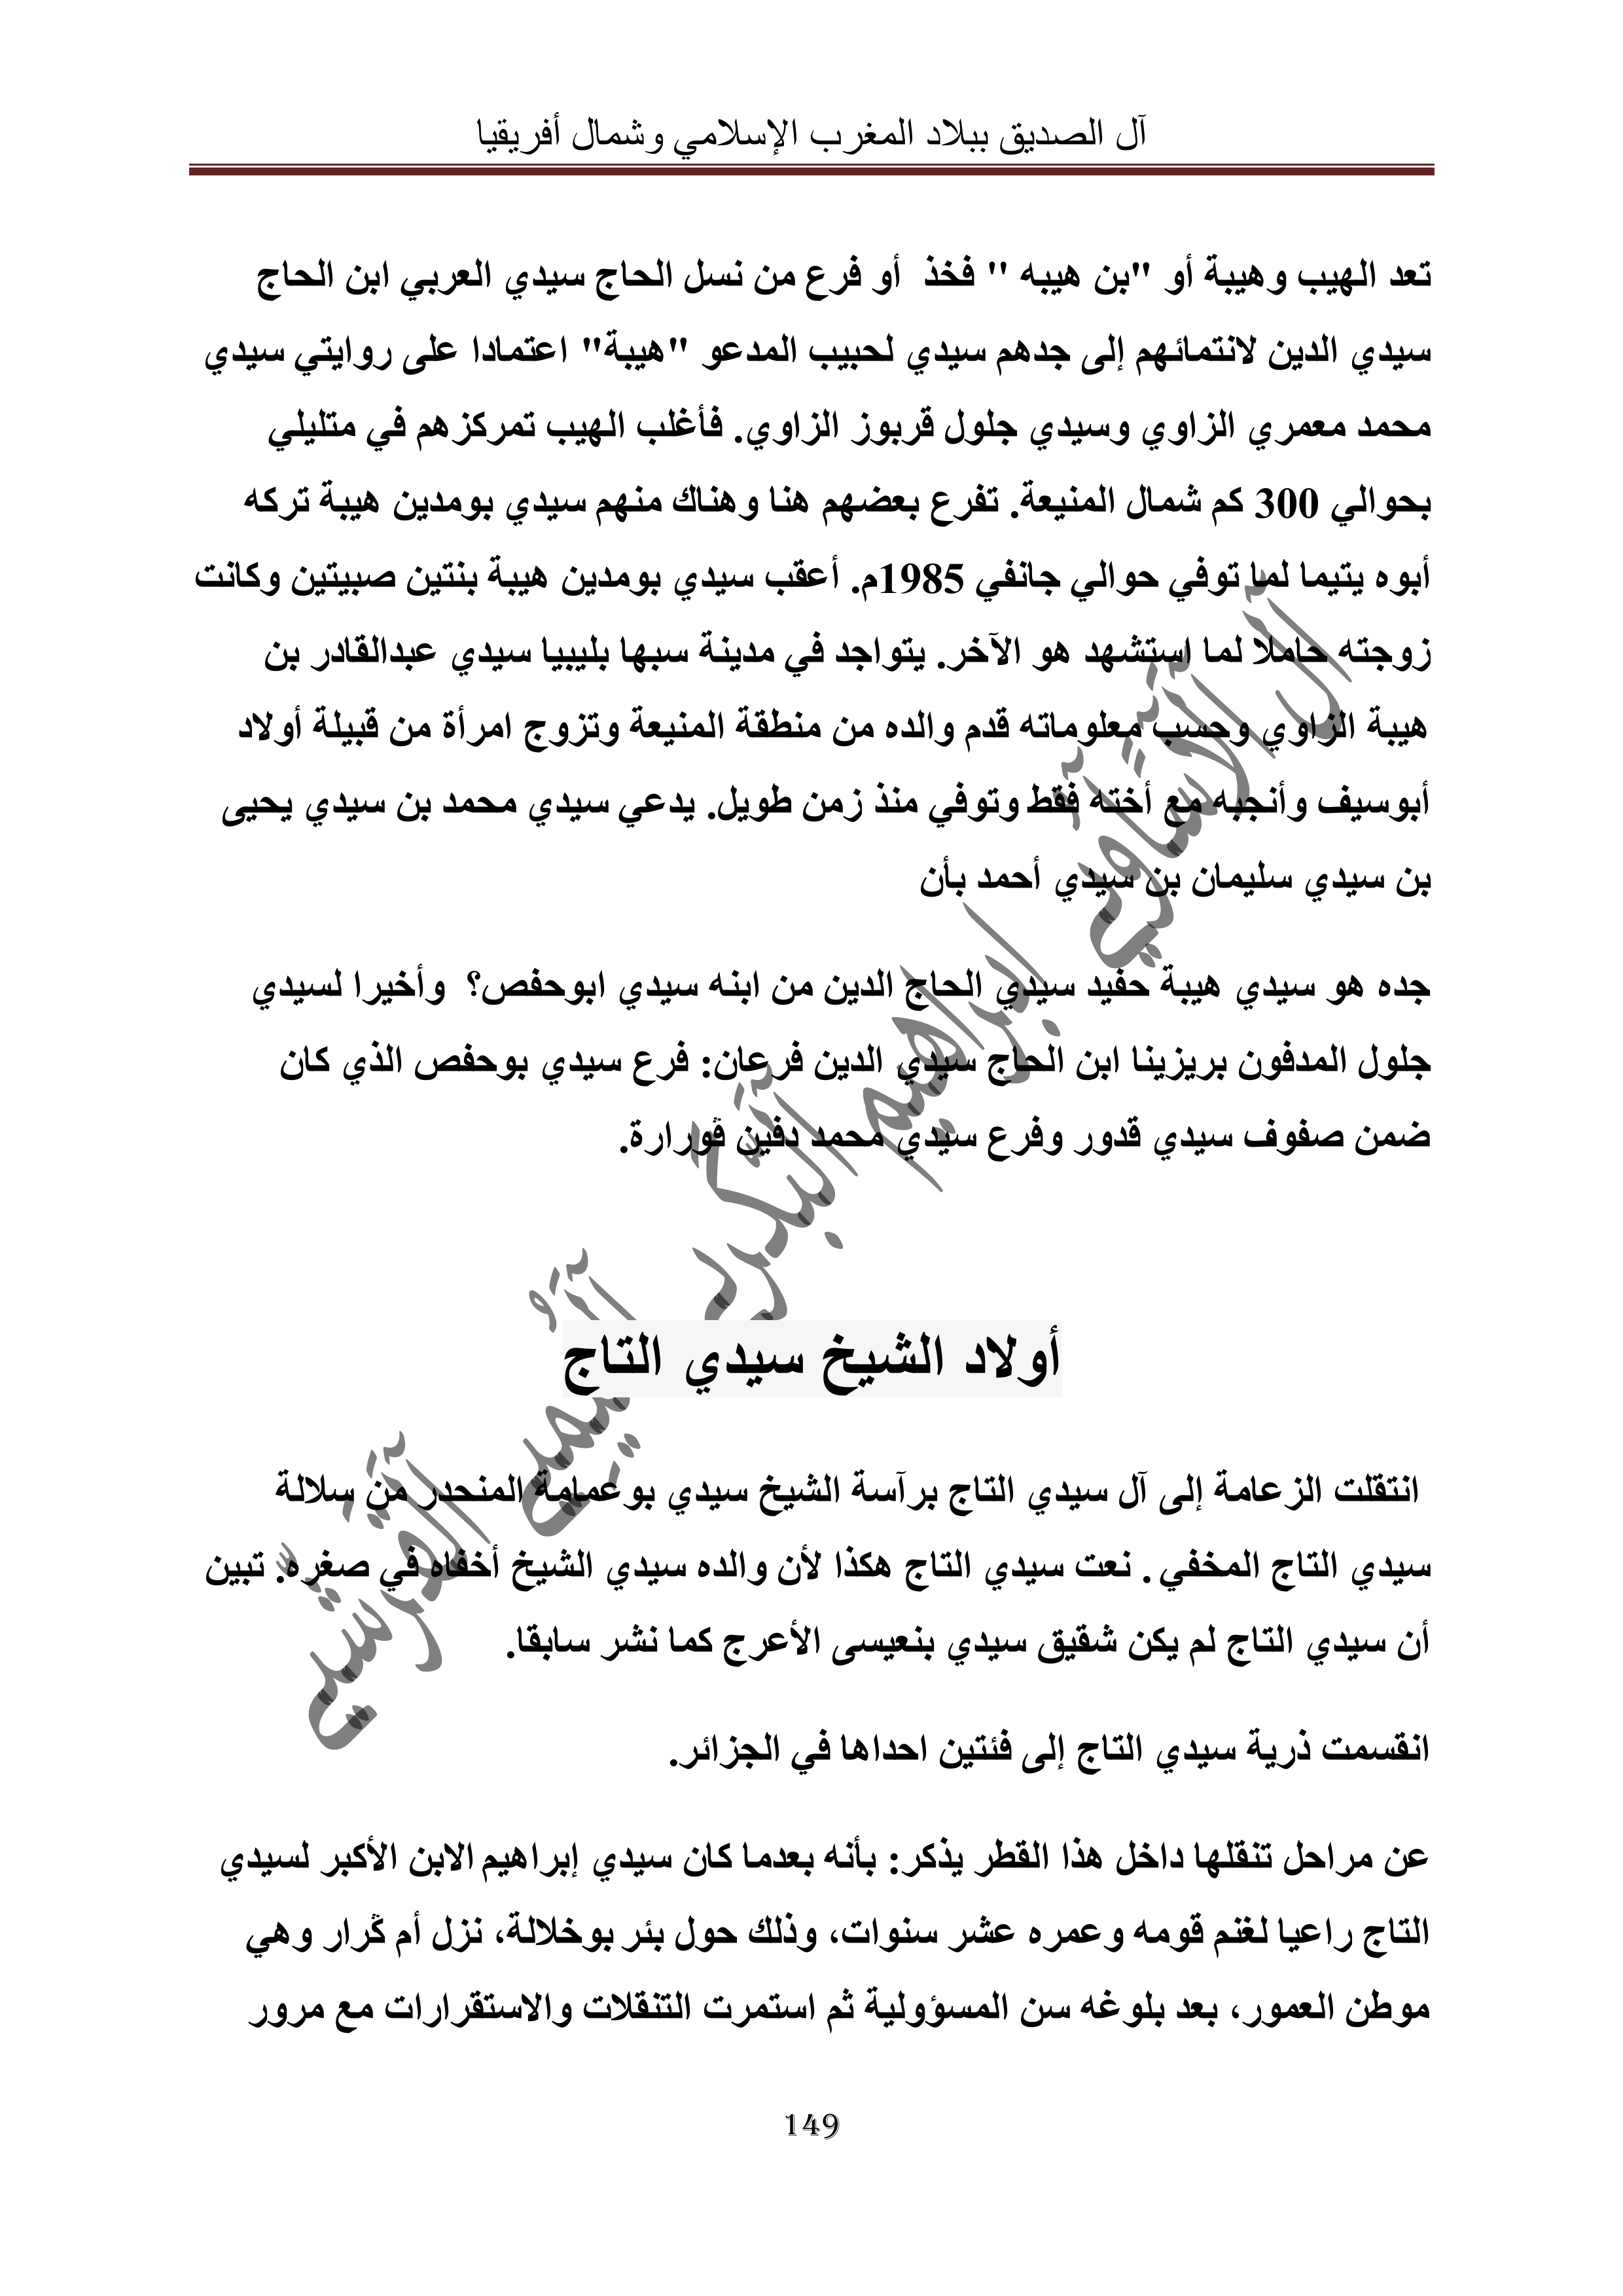 آل الصديق ببلاد المغرب الإسلامي وشمال أفريقيا
تعد الهيب وهيبة أو "بن هيبه " فخذ أو فرع من نسل الحاج سيدي العربي ابن الحاج
سيدي الدين لانتمائهم إلى جدهم سيدي لحبيب المدعو "هيبة" اعتمادا على روايتي سيدي
محمد معمري الزاوي وسيدي جلول قربوز الزاوي. فأغلب الهيب تمركزهم في متليلي
بحوالي 300 كم شمال المنيعة. تفرع بعضهم هنا وهناك منهم سيدي بومدين هيبة تركه
أبوه يتيما لما توفي حوالي جانفي 1985م. أعقب سيدي بومدين هيبة بنتين صبيتين وكانت
زوجته حاملا لما استشهد هو الآخر. يتواجد في مدينة سبها بليبيا سيدي عبدالقادر بن
هيبة الزاوي وحسب معلوماته قدم والده من منطقة المنيعة وتزوج امرأة من قبيلة أولاد
أبوسيف وأنجبه مع أخته فقط وتوفي منذ زمن طويل. يدعي سيدي محمد بن سيدي يحيى
بن سيدي سليمان بن سيدي أحمد بأن
جده هو سيدي هيبة حفيد سيدي الحاج الدين من ابنه سيدي ابوحفص؟ وأخيرا لسيدي
جلول المدفون بريزينا ابن الحاج سيدي الدين فرعان: فرع سيدي بوحفص الذي كان
ضمن صفوف سيدي قدور وفرع سيدي محمد دفين ڤورارة.
أولاد الشيخ سيدي التاج
انتقلت الزعامة إلى آل سيدي التاج برآسة الشيخ سيدي بوعمامة المنحدر من سلالة
سيدي التاج المخفي . نعت سيدي التاج هكذا لأن والده سيدي الشيخ أخفاه في صغره. تبين
أن سيدي التاج لم يكن شقيق سيدي بنعيسى الأعرج كما نشر سابقا.
انقسمت ذرية سيدي التاج إلى فئتين احداها في الجزائر.
عن مراحل تنقلها داخل هذا القطر يذكر: بأنه بعدما كان سيدي إبراهيم الابن الأكبر لسيدي
التاج راعيا لغنم قومه وعمره عشر سنوات، وذلك حول بئر بوخلالة، نزل أم ڭرار وهي
موطن العمور، بعد بلوغه سن المسؤولية ثم استمرت التنقلات والاستقرارات مع مرور
149